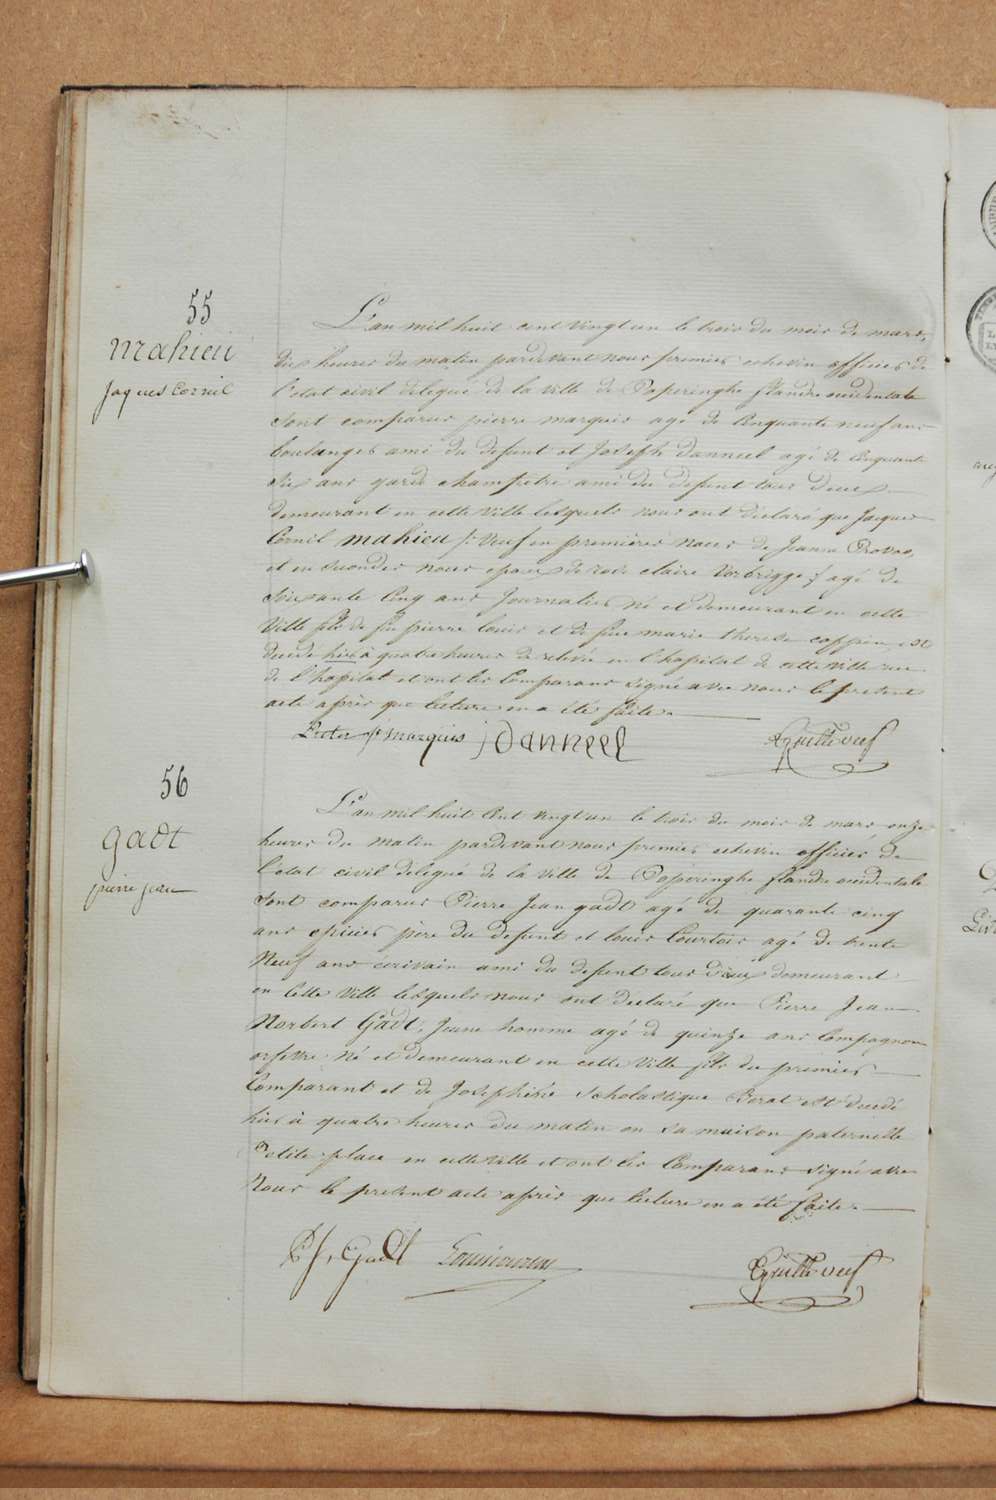 55
Mahieu
Jaques Cornil
L'an mil huit cent vingt un le trois du mois de mars,
dix heures du matin pardevant nous premier echevin officier de
l'etat civil délégué de la ville de Poperinghe flandre occidentale
sont comparus pierre marquis agé de Cinquante neuf ans
boulanger ami du defunt et Joseph Danneel agé de Cinquante
six ans garde champêtre ami du defunt tous deux
demeurant en cette ville lesquels nous ont déclaré que Jacques
Cornil Mahieu veuf en premieres noces de Jeanne Provoo,
et en secondes noces epoux de claire Verbrigge agé de
Soixante Cinq ans Journalier né et demeurant en cette
Ville fils de feu pierre louis et de feue marie therese coppin est
decedé hier à quatre heures de relevée en l'hopital de cette ville rue
de l'hopital et ont les Comparans signé avec nous le présent
acte après que lecture en a été faite.
Pieter Marquis J Danneel
56
Gadt
pierre jean
L'an mil huit Cent vingt un le trois du mois de mars, onze
heures du matin pardevant nous premier echevin officier de
l'etat civil délégué de la ville de Poperinghe flandre occidentale
sont comparus Pierre Jean gadt agé de quarante cinq
ans epicier père du defunt et louis Courtois agé de trente
Neuf ans écrivain ami du defunt tous deux demeurant
en Cette Ville lesquels nous ont déclaré que Pierre Jean
Norbert Gadt, Jeune homme agé de quinze ans Compagnon
orfevre né et demeurant en cette ville fils du premier
Comparant et de Josephine Scholastique Berat est decedé
hier à quatre heures du matin en sa maison paternelle
Petite place en cette ville et ont les Comparans signé avec
Nous le présent acte après que lecture en a été faite.
P J Gadt